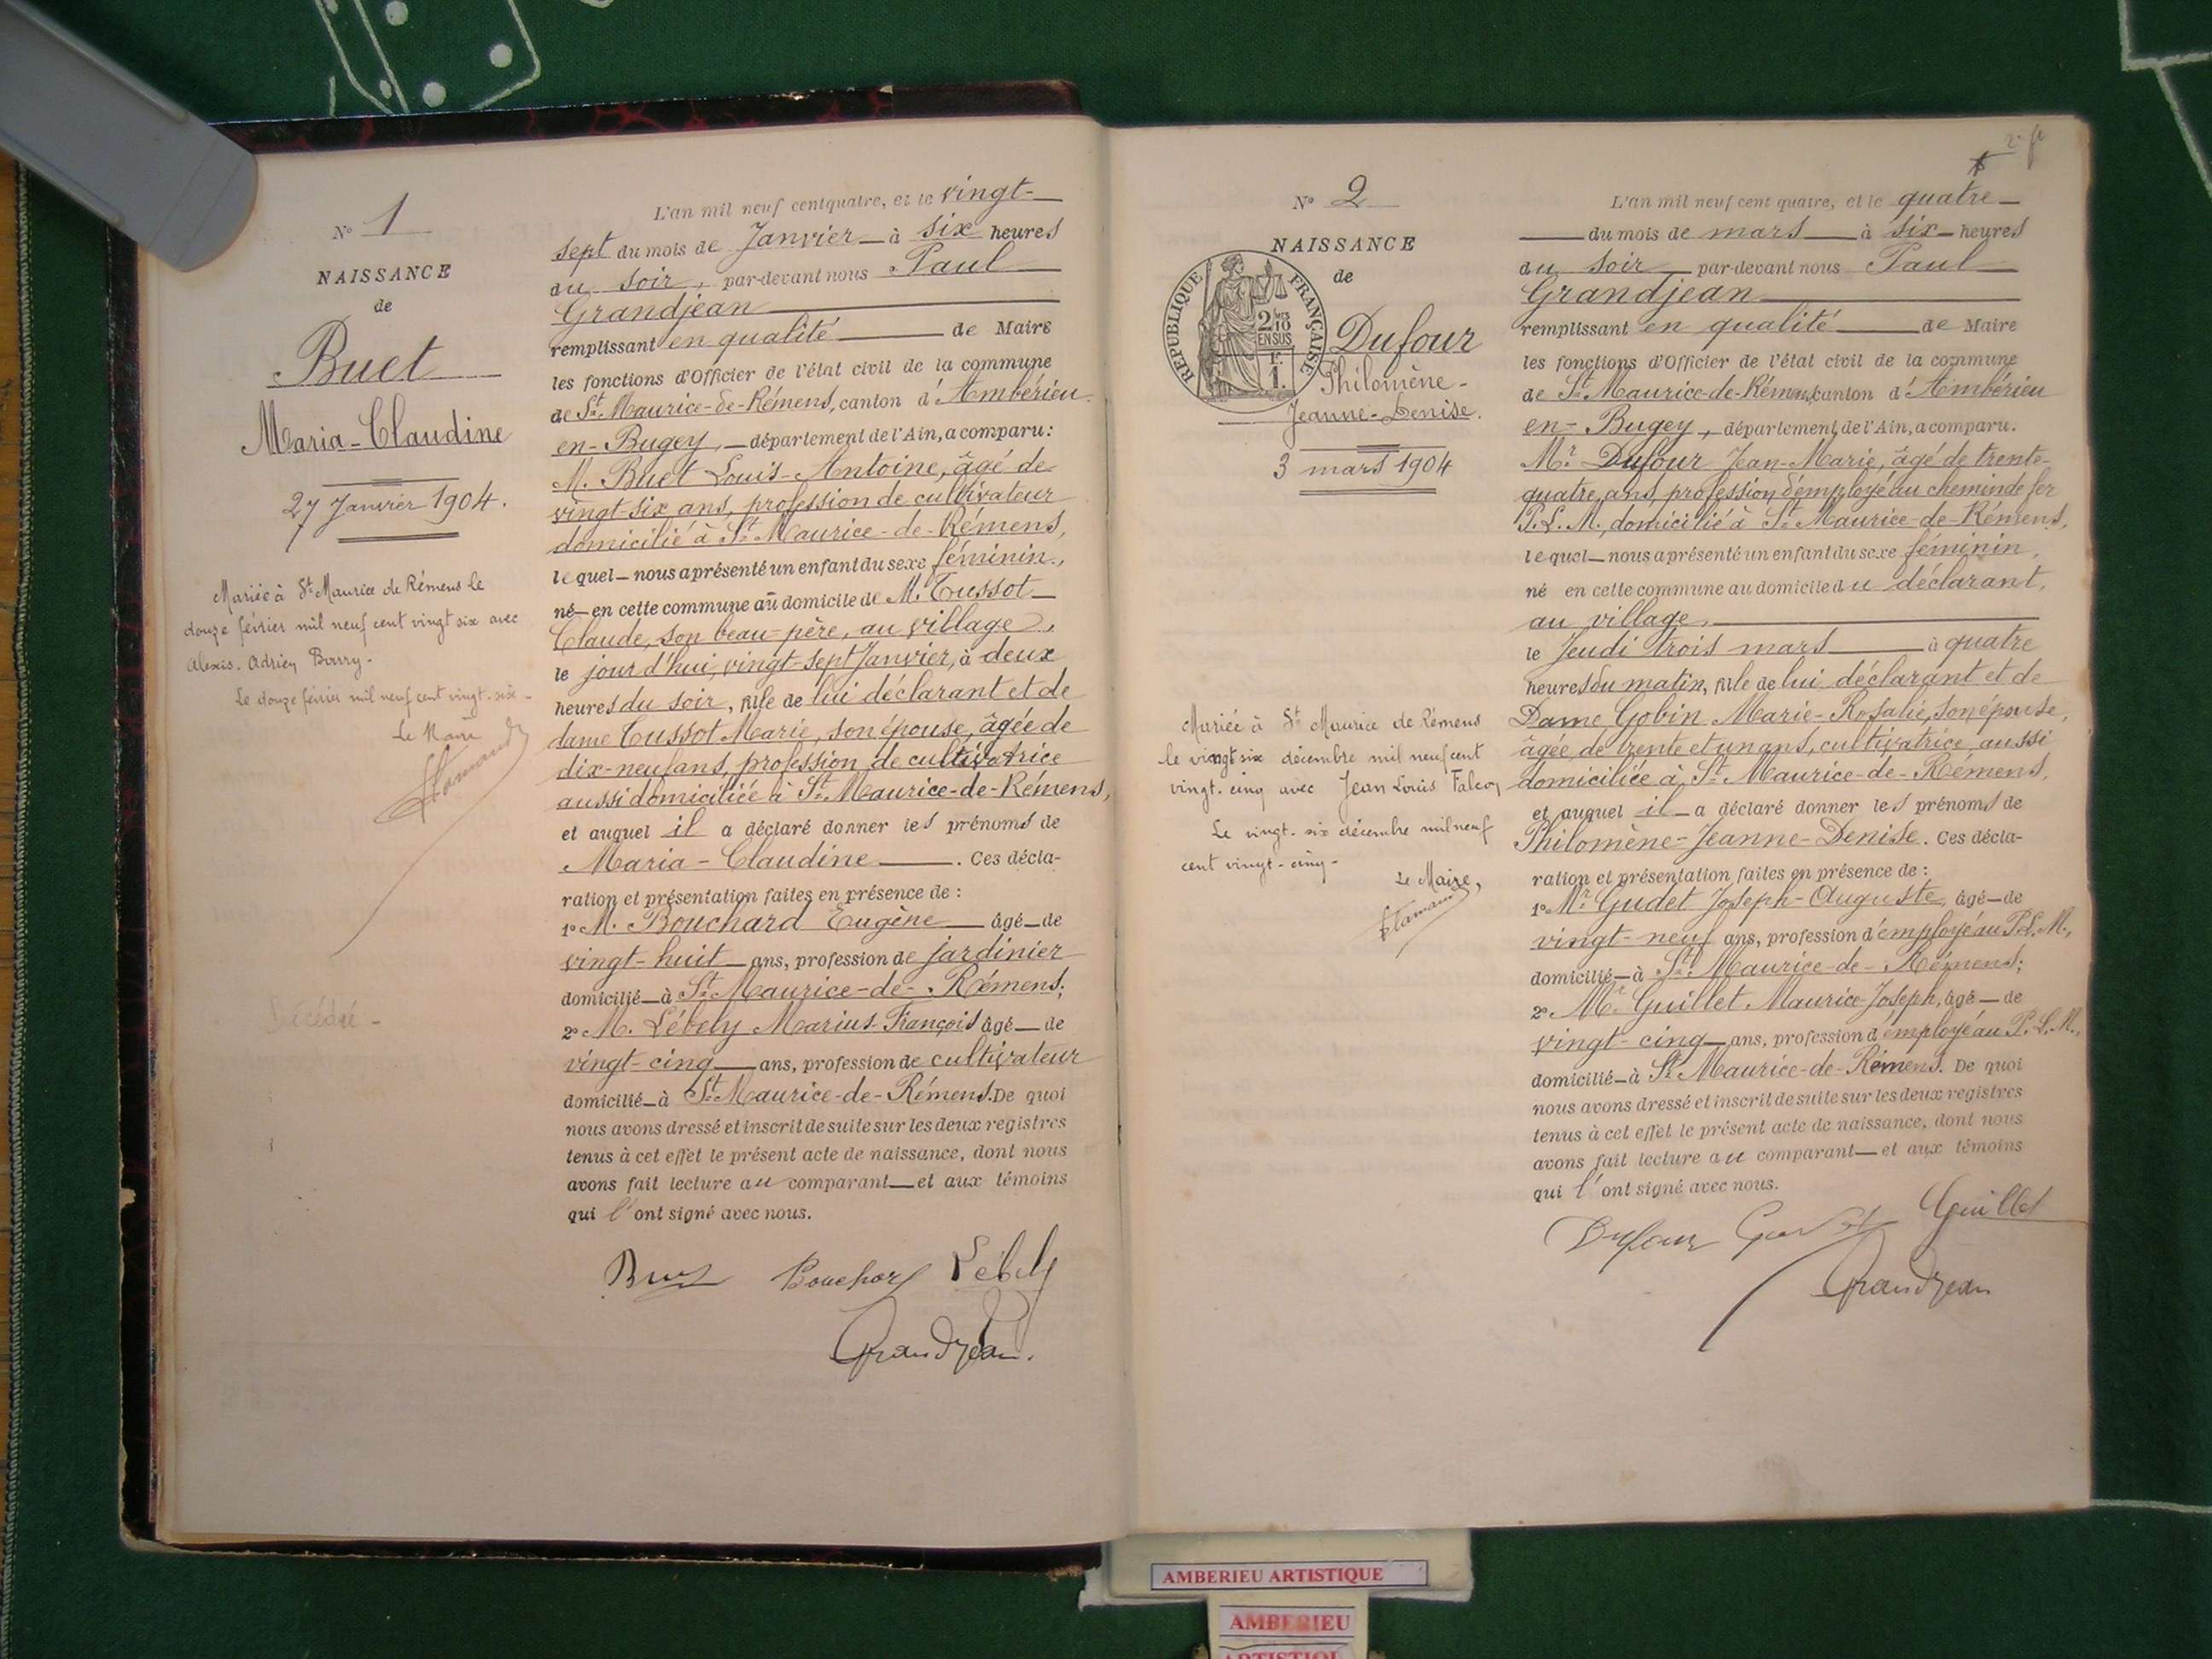 Nº 1
NAISSANCE
de
Buet
Maria-Claudine
27 Janvier 1904.
Mariée à St Maurice de Rémens le
douze février mil neuf cent vingt six avec
Alexis. Adrien
Le douze février mil neuf cent vingt-six -
Le Maire
Décédé -
L'an mil neuf cent quatre, et le vingt-
sept du mois de Janvier à six heures
du soir, par-devant nous Paul
Grandjean
remplissant en qualité de Maire
les fonctions d'Officier de l'état civil de la commune
de St Maurice-de-Rémens, canton d'Ambérieu-
en-Bugey, département de l'Ain, a comparu:
M. Buet Louis-Antoine, âgé de
vingt-six ans, profession de cultivateur
domicilié à St Maurice-de-Rémens,
lequel nous a présenté un enfant du sexe féminin,
né en cette commune au domicile de M. Tussot
Claude, son beau-père, au village,
le jour d'hui, vingt-sept Janvier, à deux
heures du soir, fille de lui déclarant et de
dame Tussot Marie, son épouse, âgée de
dix-neuf ans, profession de cultivatrice
aussi domiciliée à St Maurice-de-Rémens,
et auquel il a déclaré donner les prénoms de
Maria-Claudine. Ces décla-
ration et présentation faites en présence de :
1º M. Bouchard Eugène âgé de
vingt-huit ans, profession de jardinier
domicilié à St Maurice-de-Rémens;
2º M. Lébely Marius-François âgé de
vingt-cinq ans, profession de cultivateur
domicilié à St Maurice-de-Rémens. De quoi
nous avons dressé et inscrit de suite sur les deux registres
tenus à cet effet le présent acte de naissance, dont nous
avons fait lecture au comparant et aux témoins
qui l'ont signé avec nous.
Buet Bouchard Lébely
Grandjean.
2e ft
Nº 2
NAISSANCE
de
RÉPUBLIQUE FRANÇAISE
2/10
EN SUS
1 F.
Dufour
Philomène-
Jeanne-Denise.
3 mars 1904
Mariée à St Maurice de Rémens
le vingt six décembre mil neuf cent
vingt-cinq avec Jean Louis Falcoz
Le vingt-six décembre mil neuf
cent vingt-cinq-
Le Maire,
L'an mil neuf cent quatre, et le quatre
du mois de mars à six heures
du soir par-devant nous Paul
Grandjean
remplissant en qualité de Maire
les fonctions d'Officier de l'état civil de la commune
de St Maurice-de-Rémens, canton d'Ambérieu
en-Bugey, département de l'Ain, a comparu.
Mr Dufour Jean-Marie, âgé de trente-
quatre ans, profession d'employé au chemin de fer
P. L. M., domicilié à St Maurice-de-Rémens,
lequel nous a présenté un enfant du sexe féminin,
né en cette commune au domicile du déclarant,
au village,
le Jeudi trois mars à quatre
heures du matin, fille de lui déclarant et de
Dame Gobin Marie-Rosalie, son épouse,
âgée de trente et un ans, cultivatrice aussi
domiciliée à St Maurice-de-Rémens,
et auquel il a déclaré donner les prénoms de
Philomène-Jeanne-Denise. Ces décla-
ration et présentation faites en présence de :
1º Mr Gudet Joseph-Auguste, âgé de
vingt-neuf ans, profession d'employé au P.L.M.,
domicilié à St Maurice-de-Rémens;
2º Mr Guillet Maurice-Joseph, âgé de
vingt-cinq ans, profession d'employé au P. L. M.,
domicilié à St Maurice-de-Rémens. De quoi
nous avons dressé et inscrit de suite sur les deux registres
tenus à cet effet le présent acte de naissance, dont nous
avons fait lecture au comparant et aux témoins
qui l'ont signé avec nous.
Dufour Gudet Guillet
Grandjean
AMBERIEU ARTISTIQUE
AMBERIEU
ARTISTIQUE